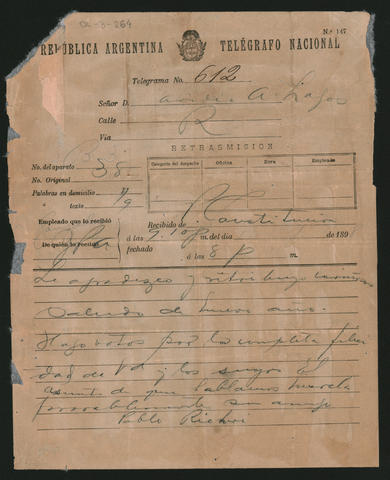 01-3-264
Nº 147
REPÚBLICA ARGENTINA TELÉGRAFO NACIONAL
Telegrama No. 612
Señor D. A. Lagos
Calle R
Via
RETRASMISION
No. del aparato 38
Categoría del despacho Oficina Hora Empleado
No. Original
Palabras en domicilio
" texto 9
Empleado que lo recibió
Recibido de Constitucion
De quién lo recibió
á las m. del dia 189
fechado á las 8 p m.
Le agradezco y retribuyo cariñoso
saludo de nuevo año.
Hago votos por la completa felici
dad de Vd y los suyos el
asunto de que hablamos marcha
favorablemente su amigo
Pablo Richieri